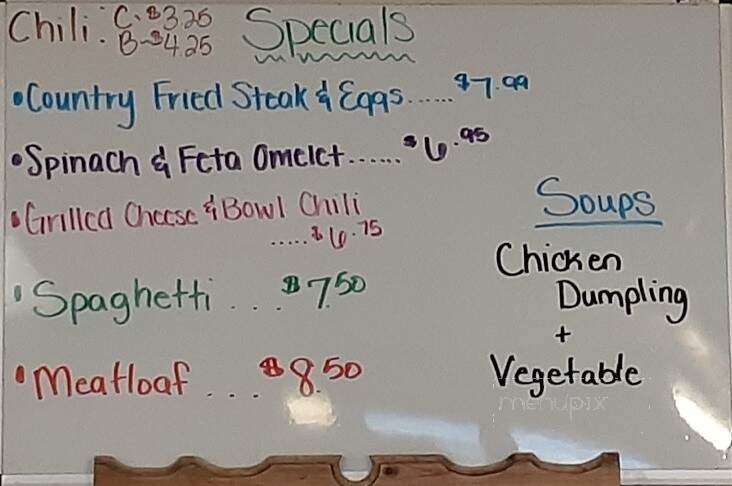 Chili: C-$3.25
B-$4.25
Specials
•Country Fried Steak & Eggs......$7.99
•Spinach & Feta Omelet......$6.95
•Grilled Cheese & Bowl Chili
.....$6.75
•Spaghetti...$7.50
•Meatloaf...$8.50
Soups
Chicken
Dumpling
+
Vegetable
menupix